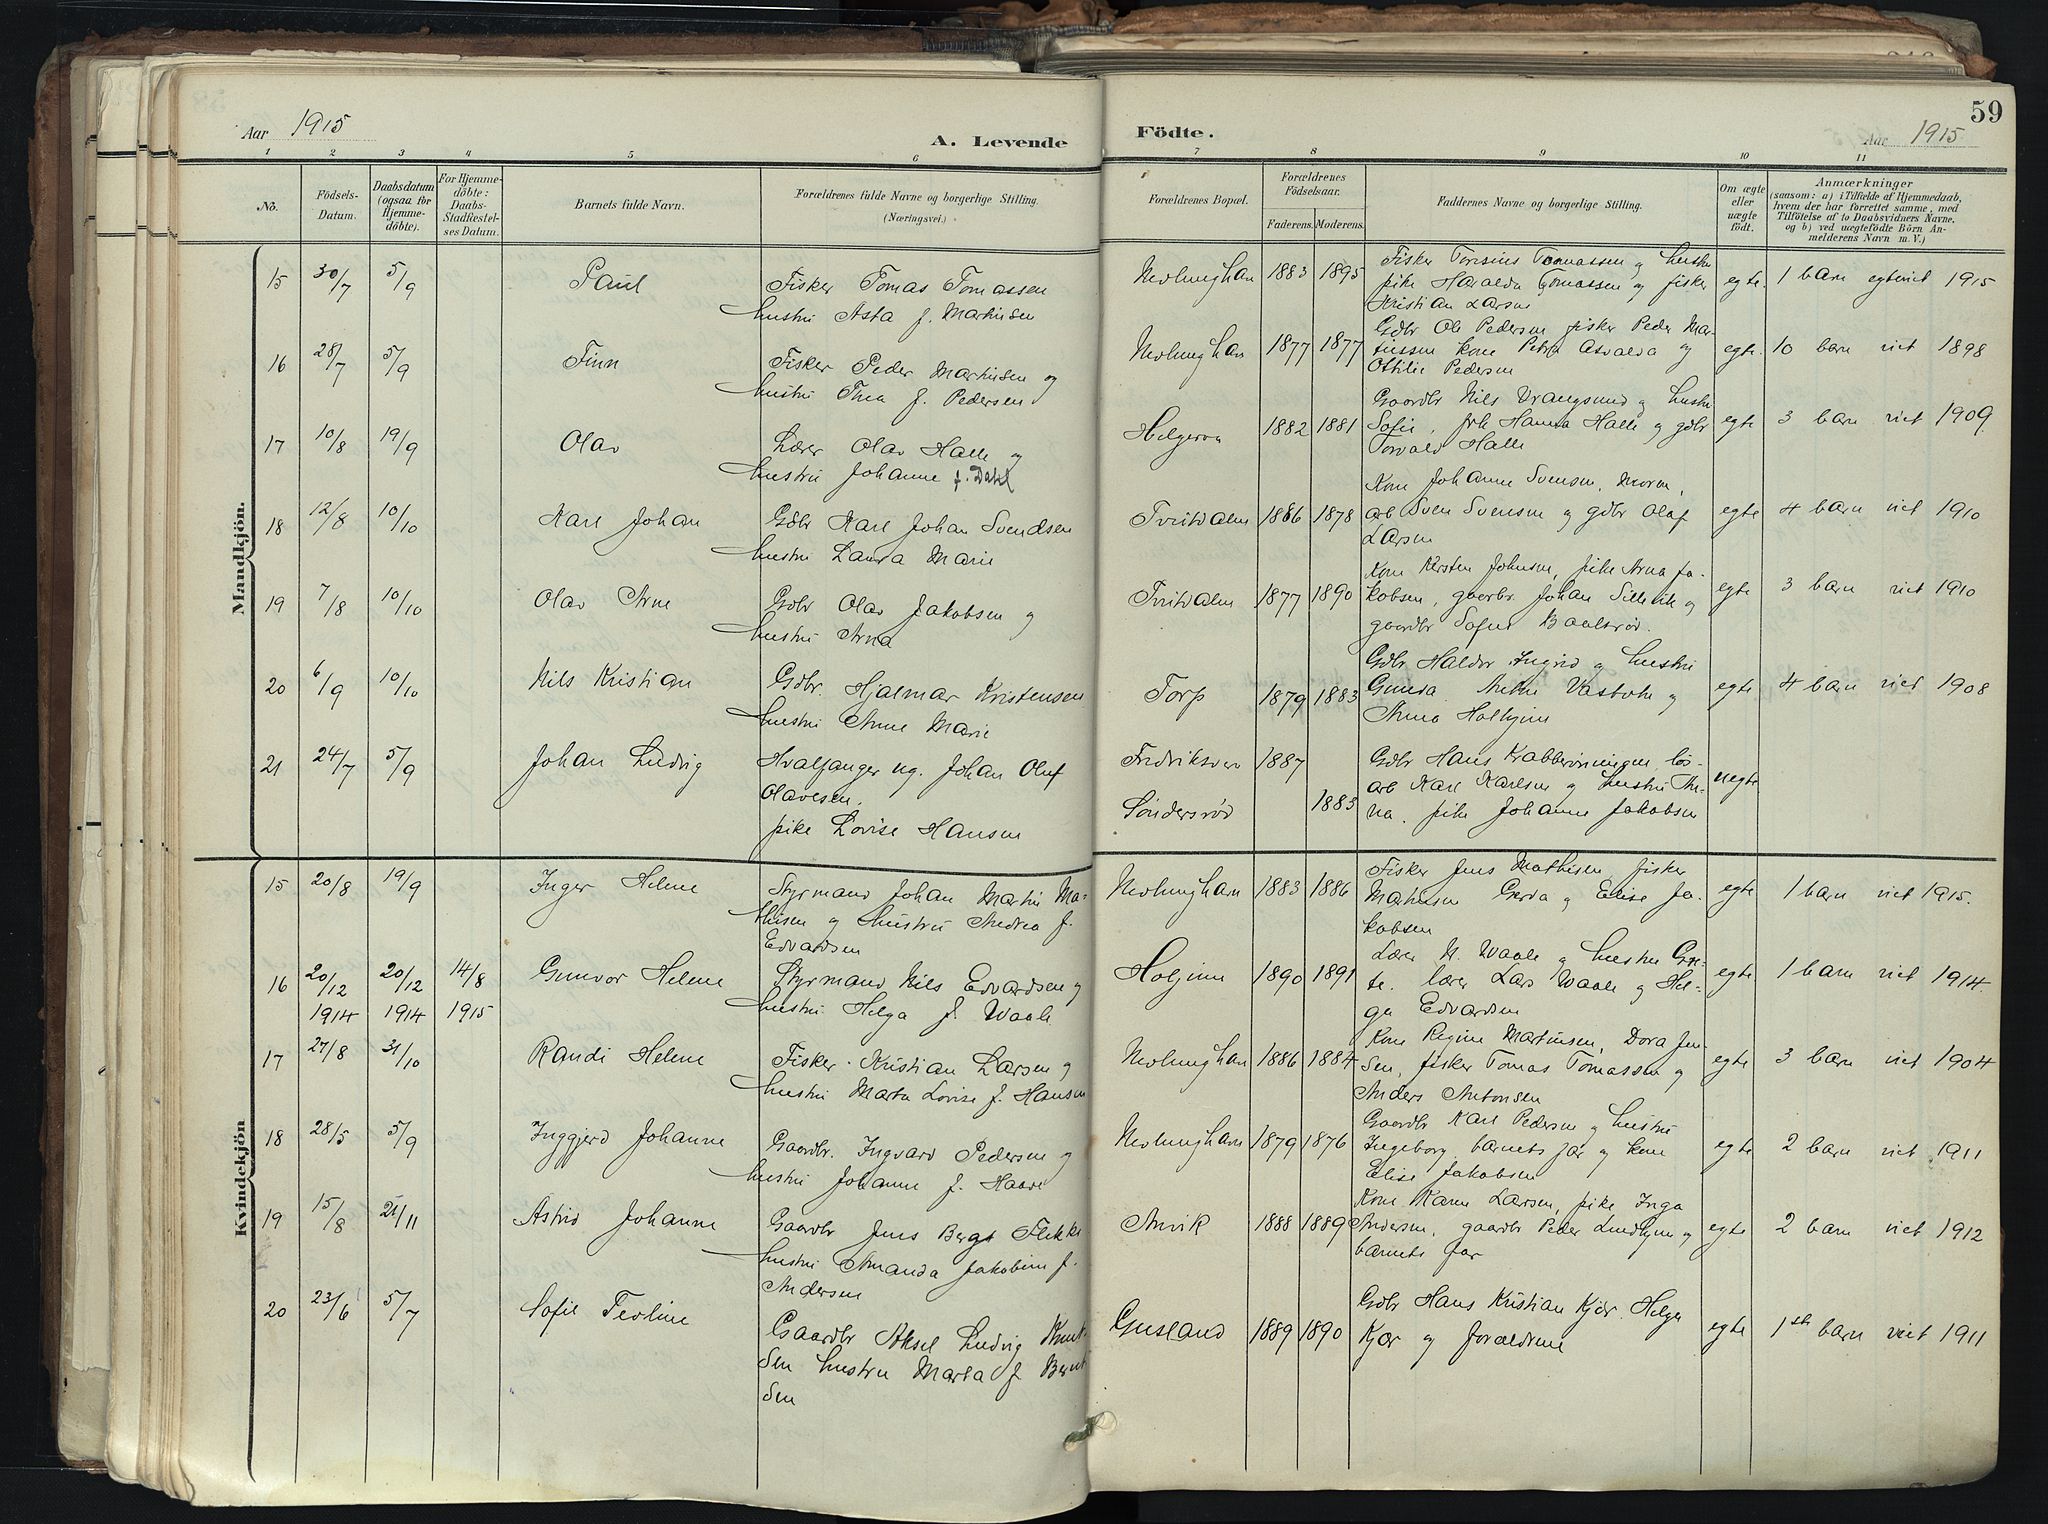 59
Aar 1915
A. Levende
Födte.
Aar 1915
1 2 3 4 5 6 7 8 9 10 11
No.
Födsels-Datum.
Daabsdatum (ogsaa for Hjemme-döbte).
For Hjemme-döbte: Daabs-Stadfæstel-ses Datum.
Barnets fulde Navn.
Forældrenes fulde Navne og borgerlige Stilling. (Næringsvei.)
Forældrenes Bopæl.
Forældrenes Födselsaar.
Faderens. Moderens.
Faddernes Navne og borgerlige Stilling.
Om ægte eller uægte födt.
Anmærkninger
(saasom: a) i Tilfælde af Hjemmedaab,
hvem der har forrettet samme, med
Tilföielse af to Daabsvidners Navne,
og b) ved uægtefödte Börn An-
melderens Navn m. V.)
Mandkjön.
15 30/7 5/9 Paul
Fisker Tomas Tomassen
hustru Asta f. Martinsen
Nevlunghavn 1883 1895
Fisker Tomassen og hustru
pike Haralda Tomassen og fisker
Kristian Larsen
egte. 1 barn egteviet 1915
16 28/7 5/9 Finn
Fisker Peder Martinsen og
hustru Thea f. Pedersen
Nevlunghavn 1877 1877
Gdbr Ole Pedersen fisker Peder Mar-
tinssen kone Petra Asvalda og
Ottilie Pedersen
egte. 10 barn viet 1898
17 10/8 19/9 Olav
Lærer Olav Halle og
hustru Johanne f. Dahl
Helgeroa 1882 1881
Gaardbr Nils Vrangsund og hustru
Sofie, frk Hanna Halle og gdbr
Torvald Halle
egte 3 barn viet 1909
18 12/8 10/10 Karl Johan
Gdbr Karl Johan Svendsen
hustru Laura Marie
Tvitdalm 1866 1878
Kone Johanne Svensen, moren,
arb Sven Svensen og gdbr Olaf
Larsen
egte 4 barn viet 1910
19 7/8 10/10 Olav Arne
Gdbr Olav Jakobsen og
hustru Arna
Tvitdalm 1877 1890
Kone Kirsten Johnsen, pike Arna Ja-
kobsen, gaardbr. Johan Sillevik og
gaardbr Sofus Baalsrød.
egte 3 barn viet 1910
20 6/9 10/10 Nils Kristian
Gdbr. Hjalmar Kristensen
hustru Anne Marie
Torp 1879 1883
Gdbr Haldor og hustru
Gunda og
Anna Holtjinn
egte 4 barn viet 1908
21 24/7 5/9 Johan Ludvig
Hvalfanger ug. Johan Oluf
Olavesen.
pike Lovise Hansen
Fredriksvern 1887
Søndersrød 1883
Gdbr Hans Krabberønningen, løs-
arb Karl Karlsen og hustru An-
na. pike Johanne Jakobsen
uegte
Kvindekjön
15 20/8 19/9 Inger Helene
Styrmand Johan Martin Ma-
thisen og hustru Andrea f.
Edvardsen
Nevlunghavn 1883 1886
Fisker Jens Mathisen, fisker
Mathisen Gerda og Elise Ja-
kobsen
egte 1 barn viet 1915.
16 20/12 1914 20/12 1914 14/8 1915 Gunvor Helene
Styrmand Nils Edvardsen og
hustru Helga f. Waale
Holjinn 1890 1891
Lærer N. Waale og hustru Gre-
te. lærer Lars Waale og Hel-
ga Edvardsen
egte. 1 barn viet 1914.
17 27/8 31/10 Randi Helene
Fisker Kristian Larsen og
hustru Marta Lovise f. Hansen
Nevlunghavn 1886 1884
Kone Regine Martinsen, Dora Jen-
sen, fisker Tomas Tomassen og
Anders Antonsen
egte 3 barn viet 1904
18 28/5 5/9 Inggjerd Johanne
Gaardbr. Ingvard Pedersen og
hustru Johanne f. Haave
Nevlunghavn 1879 1876
Gaardbr Karl Pedersen og hustru
Ingeborg, barnets far og kone
Elise Jakobsen
egte 2 barn viet 1911
19 15/8 21/11 Astrid Johanne
Gaardbr Jens Berge Flekke
hustru Amanda Jakobine f.
Andersen
Anvik 1888 1889
Kone Karen Larsen, pike Inga
Andersen, gaardbr Peder og
barnets far
egte 2 barn viet 1912
20 23/6 5/7 Sofie Teoline
Gaardbr Aksel Ludvig Knut-
sen hustru Marta f. Bernt
sen
Gusland 1889 1890
Gdbr Hans Kristian Kjær. Helga
Kjær og forældrene
egte 1st barn viet 1911